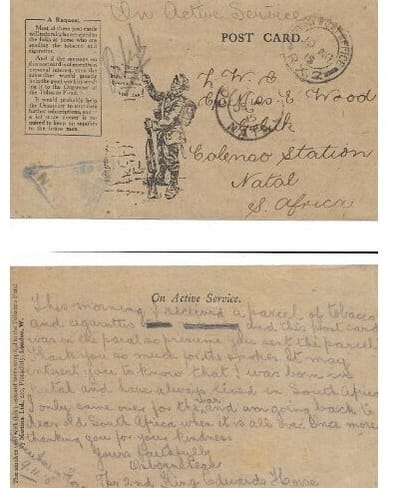 On Active Service
POST CARD.
A Request:—
Most of these post cards
will
the folks at home who are
sending the tobacco and
cigarettes.
And if the
personal interest,
subscriber would
help the good work by
it to the Organiser of
the Tobacco Fund.
It would probably help
the Organiser to
further subscriptions, and
a lot more money is
quired to keep up supplies
to the brave men.
c/o Miss E Wood
Colenso Station
Natal
S. Africa
On Active Service.
This morning I received a parcel of tobacco
and cigarettes and this post card
was in the parcel so presume you sent the parcel
Thank you so much for the smokes. It may
interest you to know that I was born in
Natal and have always lived in South Africa
war
I only came over for the, and am going back to
dear old South Africa when it is all over. Once more
thanking you for your kindness
Yours faithfully
2nd King Edwards Horse
by Martins Ltd., 210, Piccadilly, London, W.